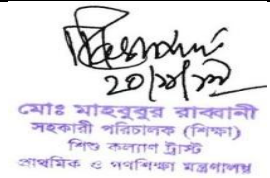 ২০/১১/১৭
মোঃ মাহবুবুর রাব্বানী
সহকারী পরিচালক (শিক্ষা)
শিশু কল্যাণ ট্রাস্ট
প্রাথমিক ও গণশিক্ষা মন্ত্রণালয়